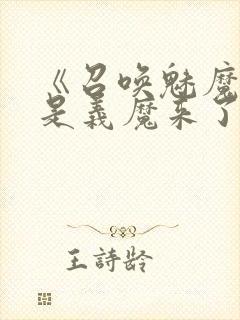 《召唤魅魔
是義魔来了
王詩龄